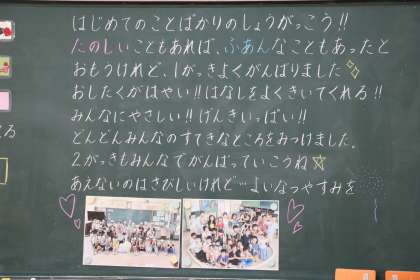 はじめてのことばかりのしょうがっこう!!
たのしいこともあれば、ふあんなこともあったと
おもうけれど、1がっきよくがんばりました
おしたくがはやい!!はなしをよくきいてくれる!!
みんなにやさしい!!げんきいっぱい!!
どんどんみんなのすてきなところをみつけました.
2がっきもみんなでがんばっていこうね☆
あえないのはさびしいけれど…よいなつやすみを